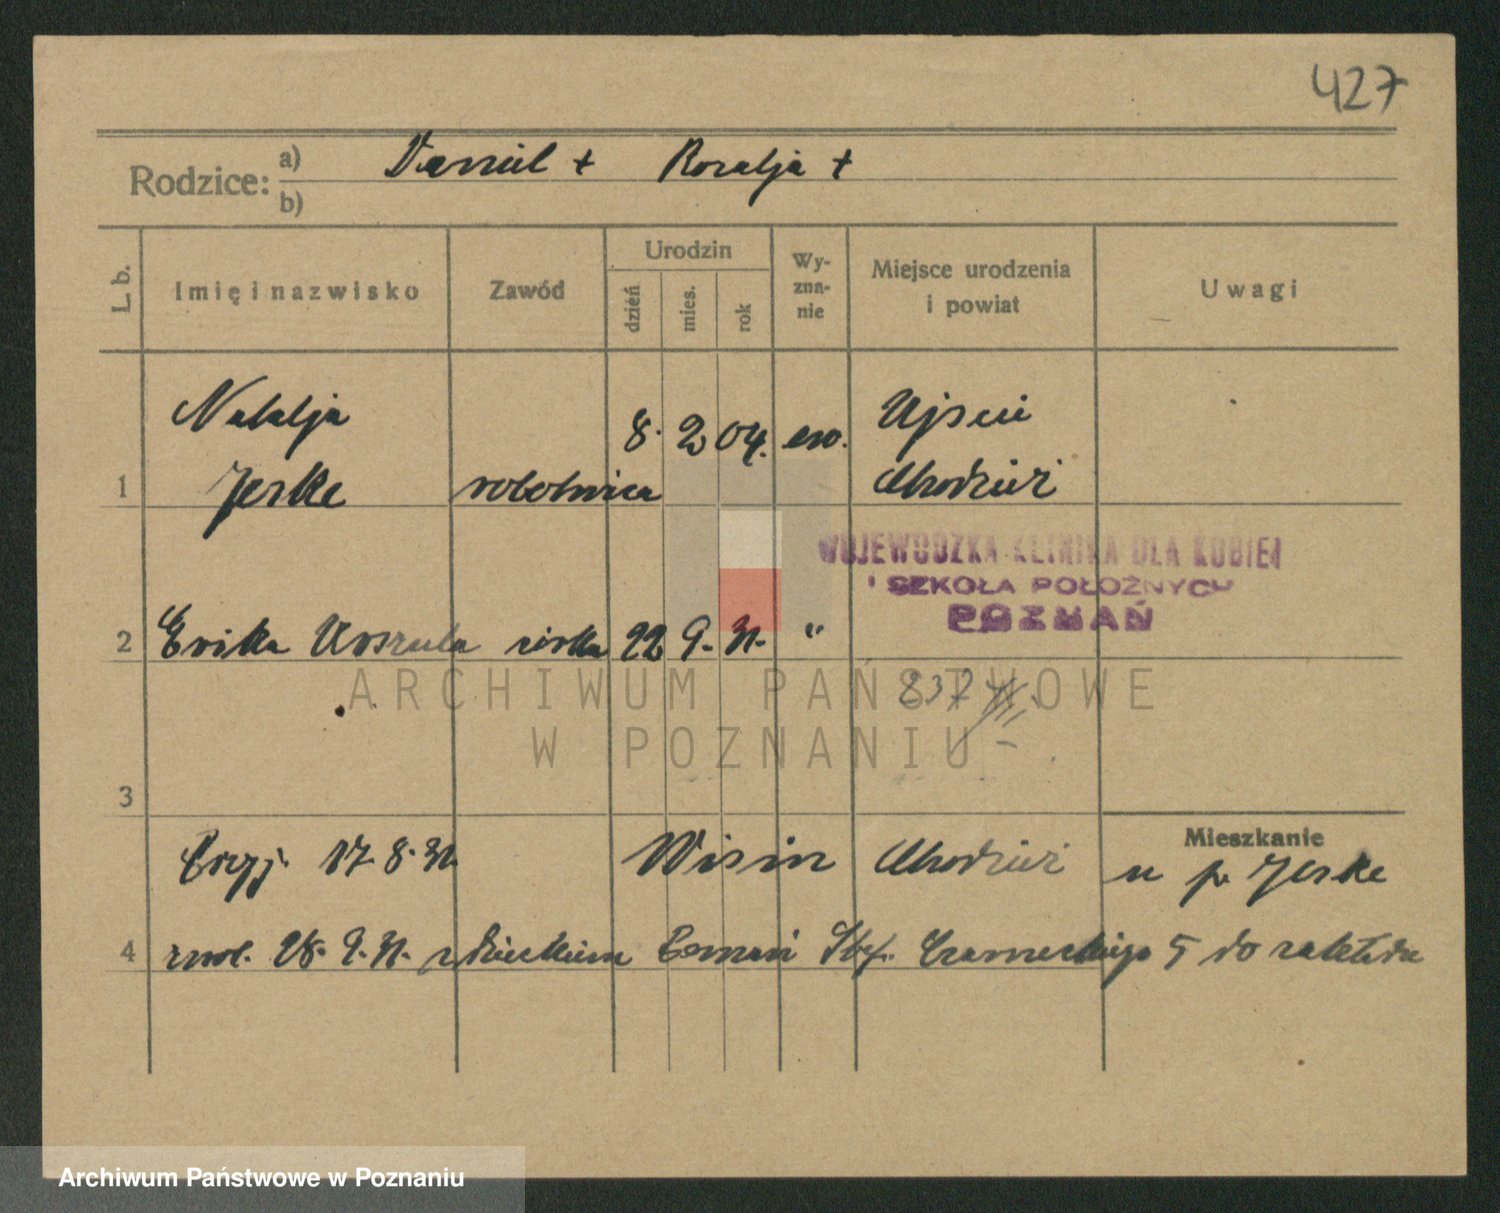 427
Rodzice: a) Daniel + Rozalja +
b)
L. b. Imię i nazwisko Zawód Urodzin dzień mies. rok Wy-zna-nie Miejsce urodzenia i powiat Uwagi
Natalja 8. 2 04. ew. Ujście
1 Jeske robotnica Chodzież
WOJEWÓDZKA KLINIKA DLA KOBIET
I SZKOŁA POŁOŻNYCH
POZNAŃ
2 Erika Urszula córka 22 9. 31. "
837
ARCHIWUM PAŃSTWOWE
W POZNANIU
3
Mieszkanie
17. 8. 31. Chodzież u p. Jeske
4 28. 9. 31. z dzieckiem Poznań Stef. Czarneckiego 5 do zakładu
Archiwum Państwowe w Poznaniu